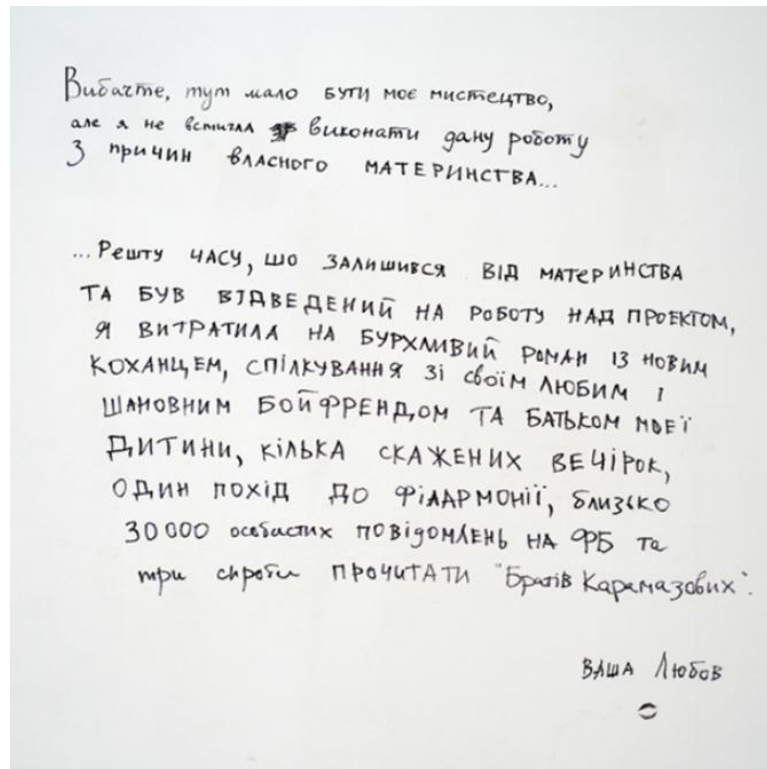 Вибачте, тут мало бути моє мистецтво,
але я не встигла виконати дану роботу
З причин власного материнства...
...Решту часу, що залишився від материнства
та був відведений на роботу над проектом,
я витратила на бурхливий роман із новим
коханцем, спілкування зі своїм любим і
шановним бойфрендом та батьком моєї
дитини, кілька скажених вечірок,
один похід до філармонії, близько
30000 особистих повідомлень на ФБ та
три спроби прочитати "Братів Карамазових".
Ваша Любов